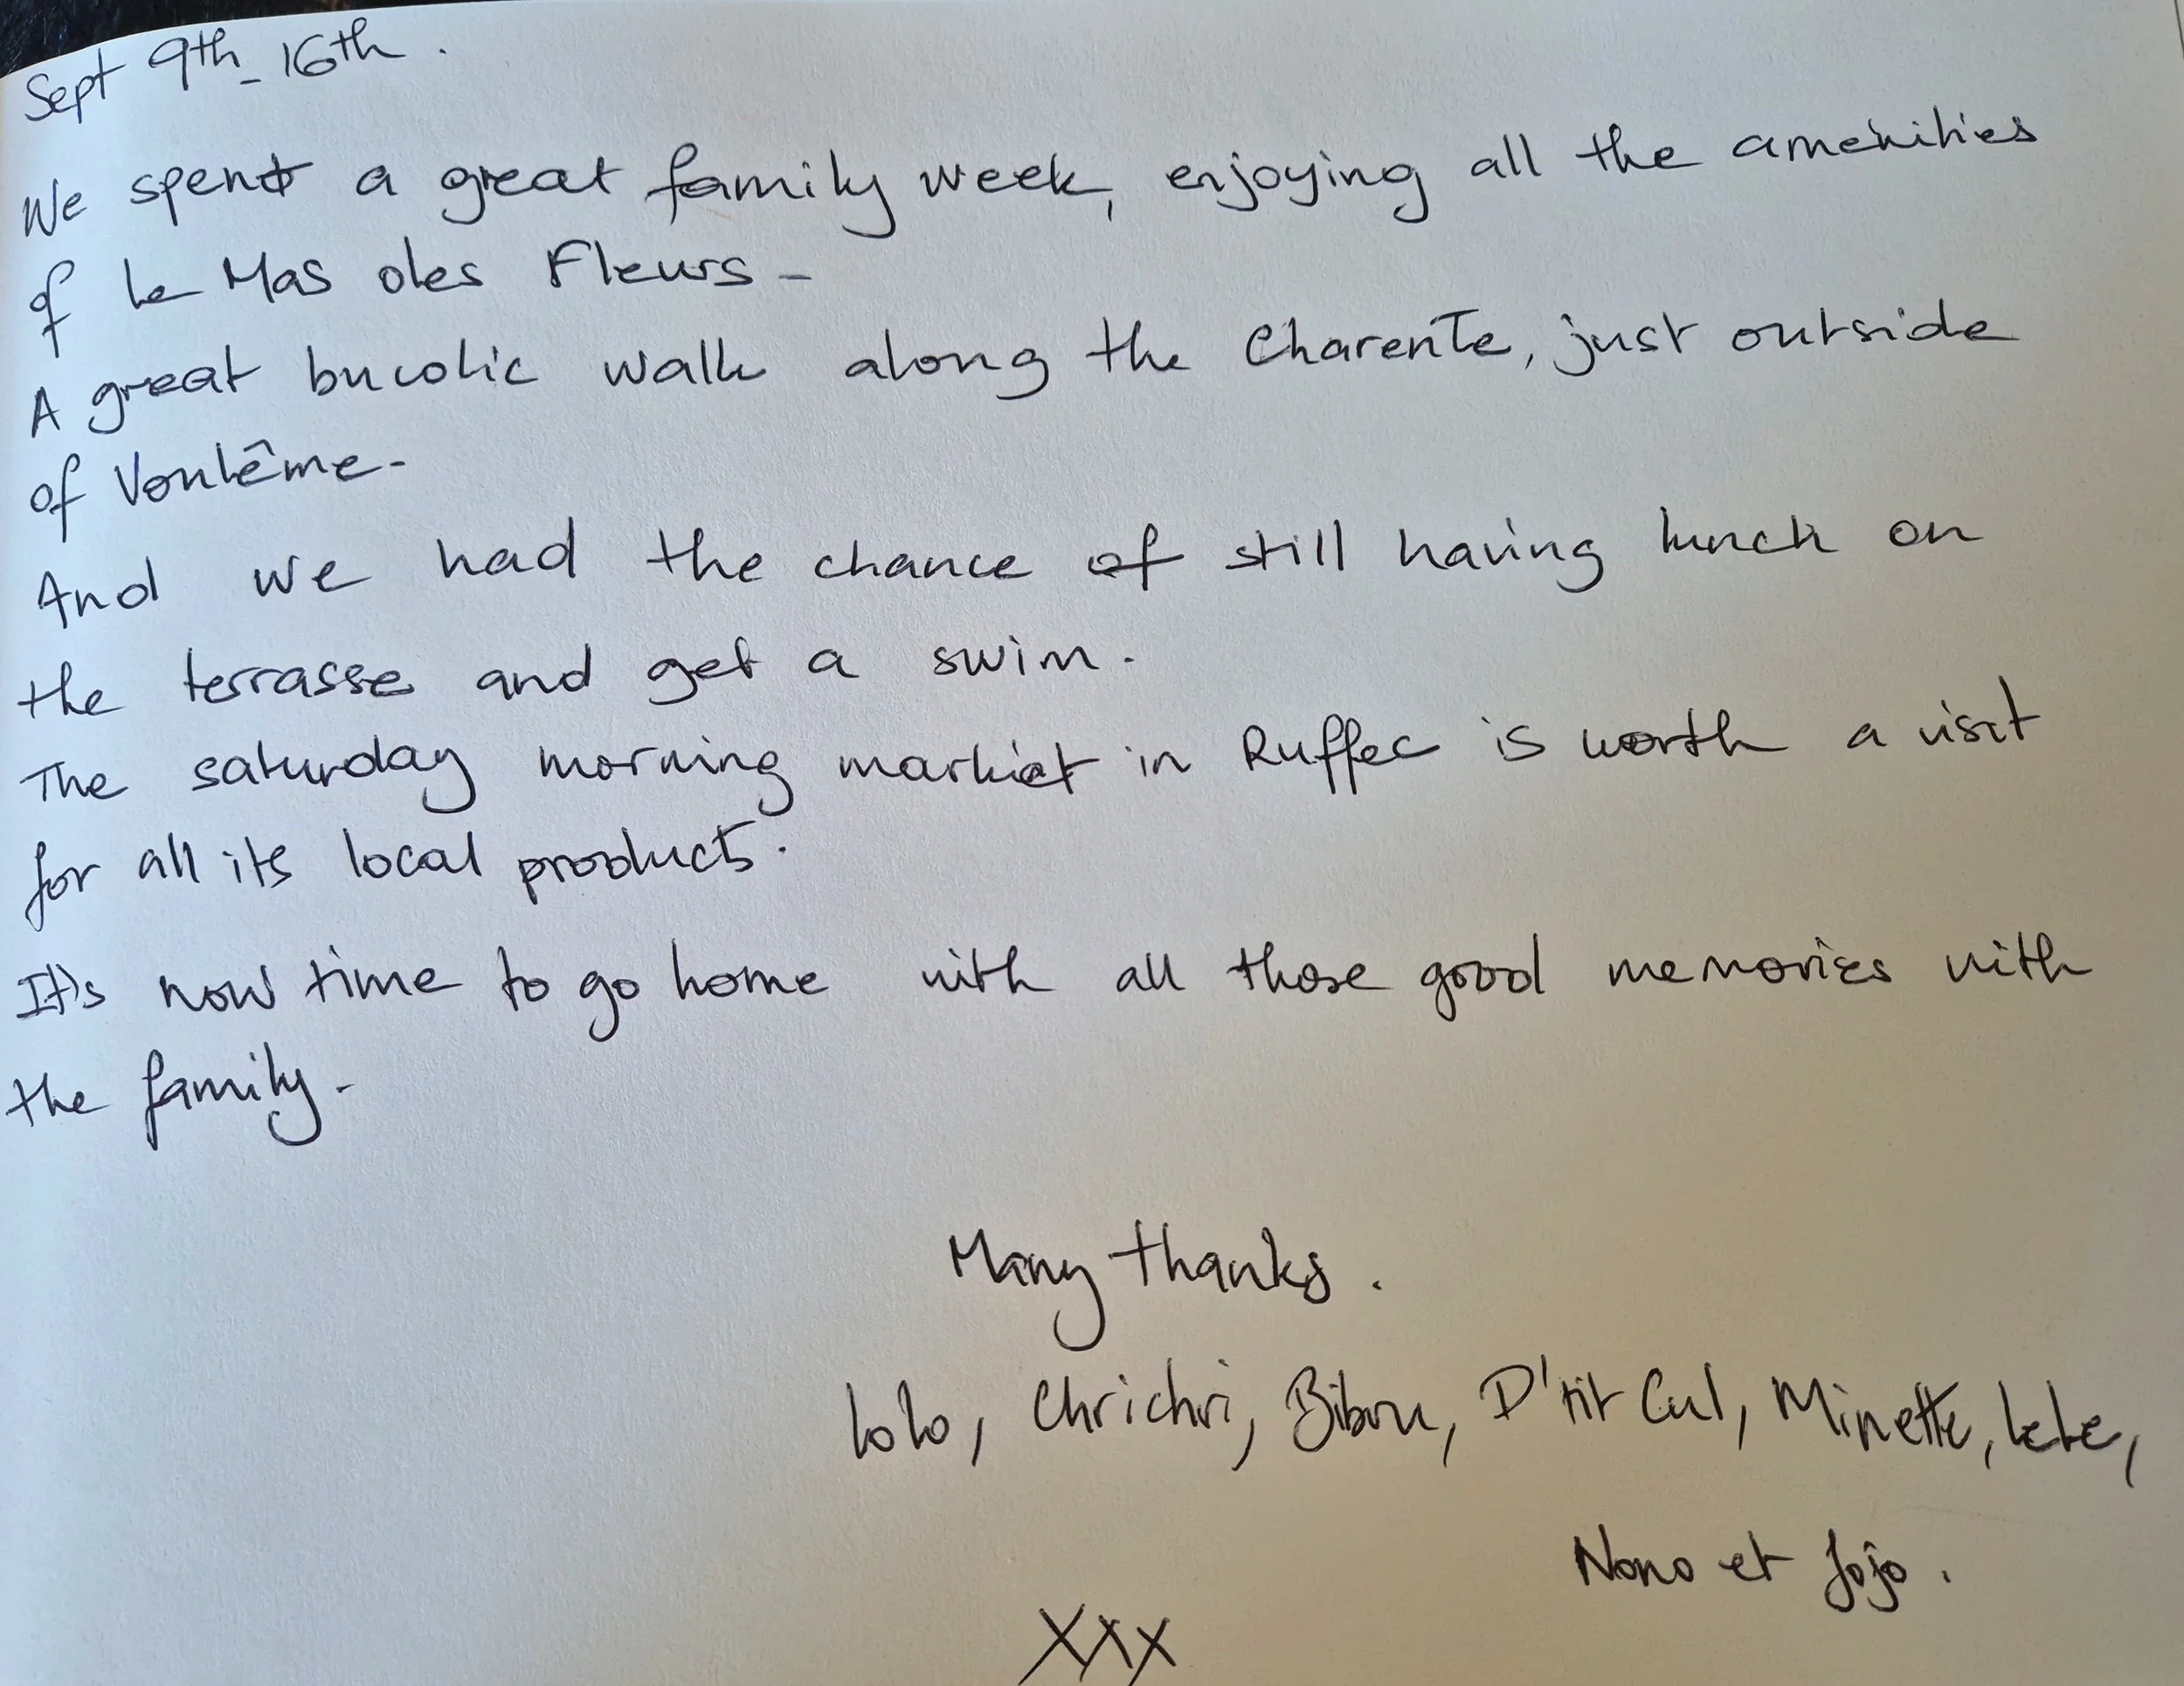 Sept 9th - 16th.
We spent a great family week, enjoying all the amenities
of Le Mas des Fleurs -
A great bucolic walk along the Charente, just outside
of Voulême -
And we had the chance of still having lunch on
the terrasse and get a swim.
The saturday morning market in Ruffec is worth a visit
for all its local products.
It's now time to go home with all those good memories with
the family -
Many thanks.
Lolo, Chrichri, Bibou, D'tit Cul, Minette, Lele,
Nono et Jojo.
XXX